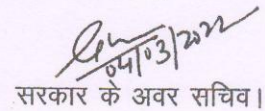 04/03/2022
सरकार के अवर सचिव।